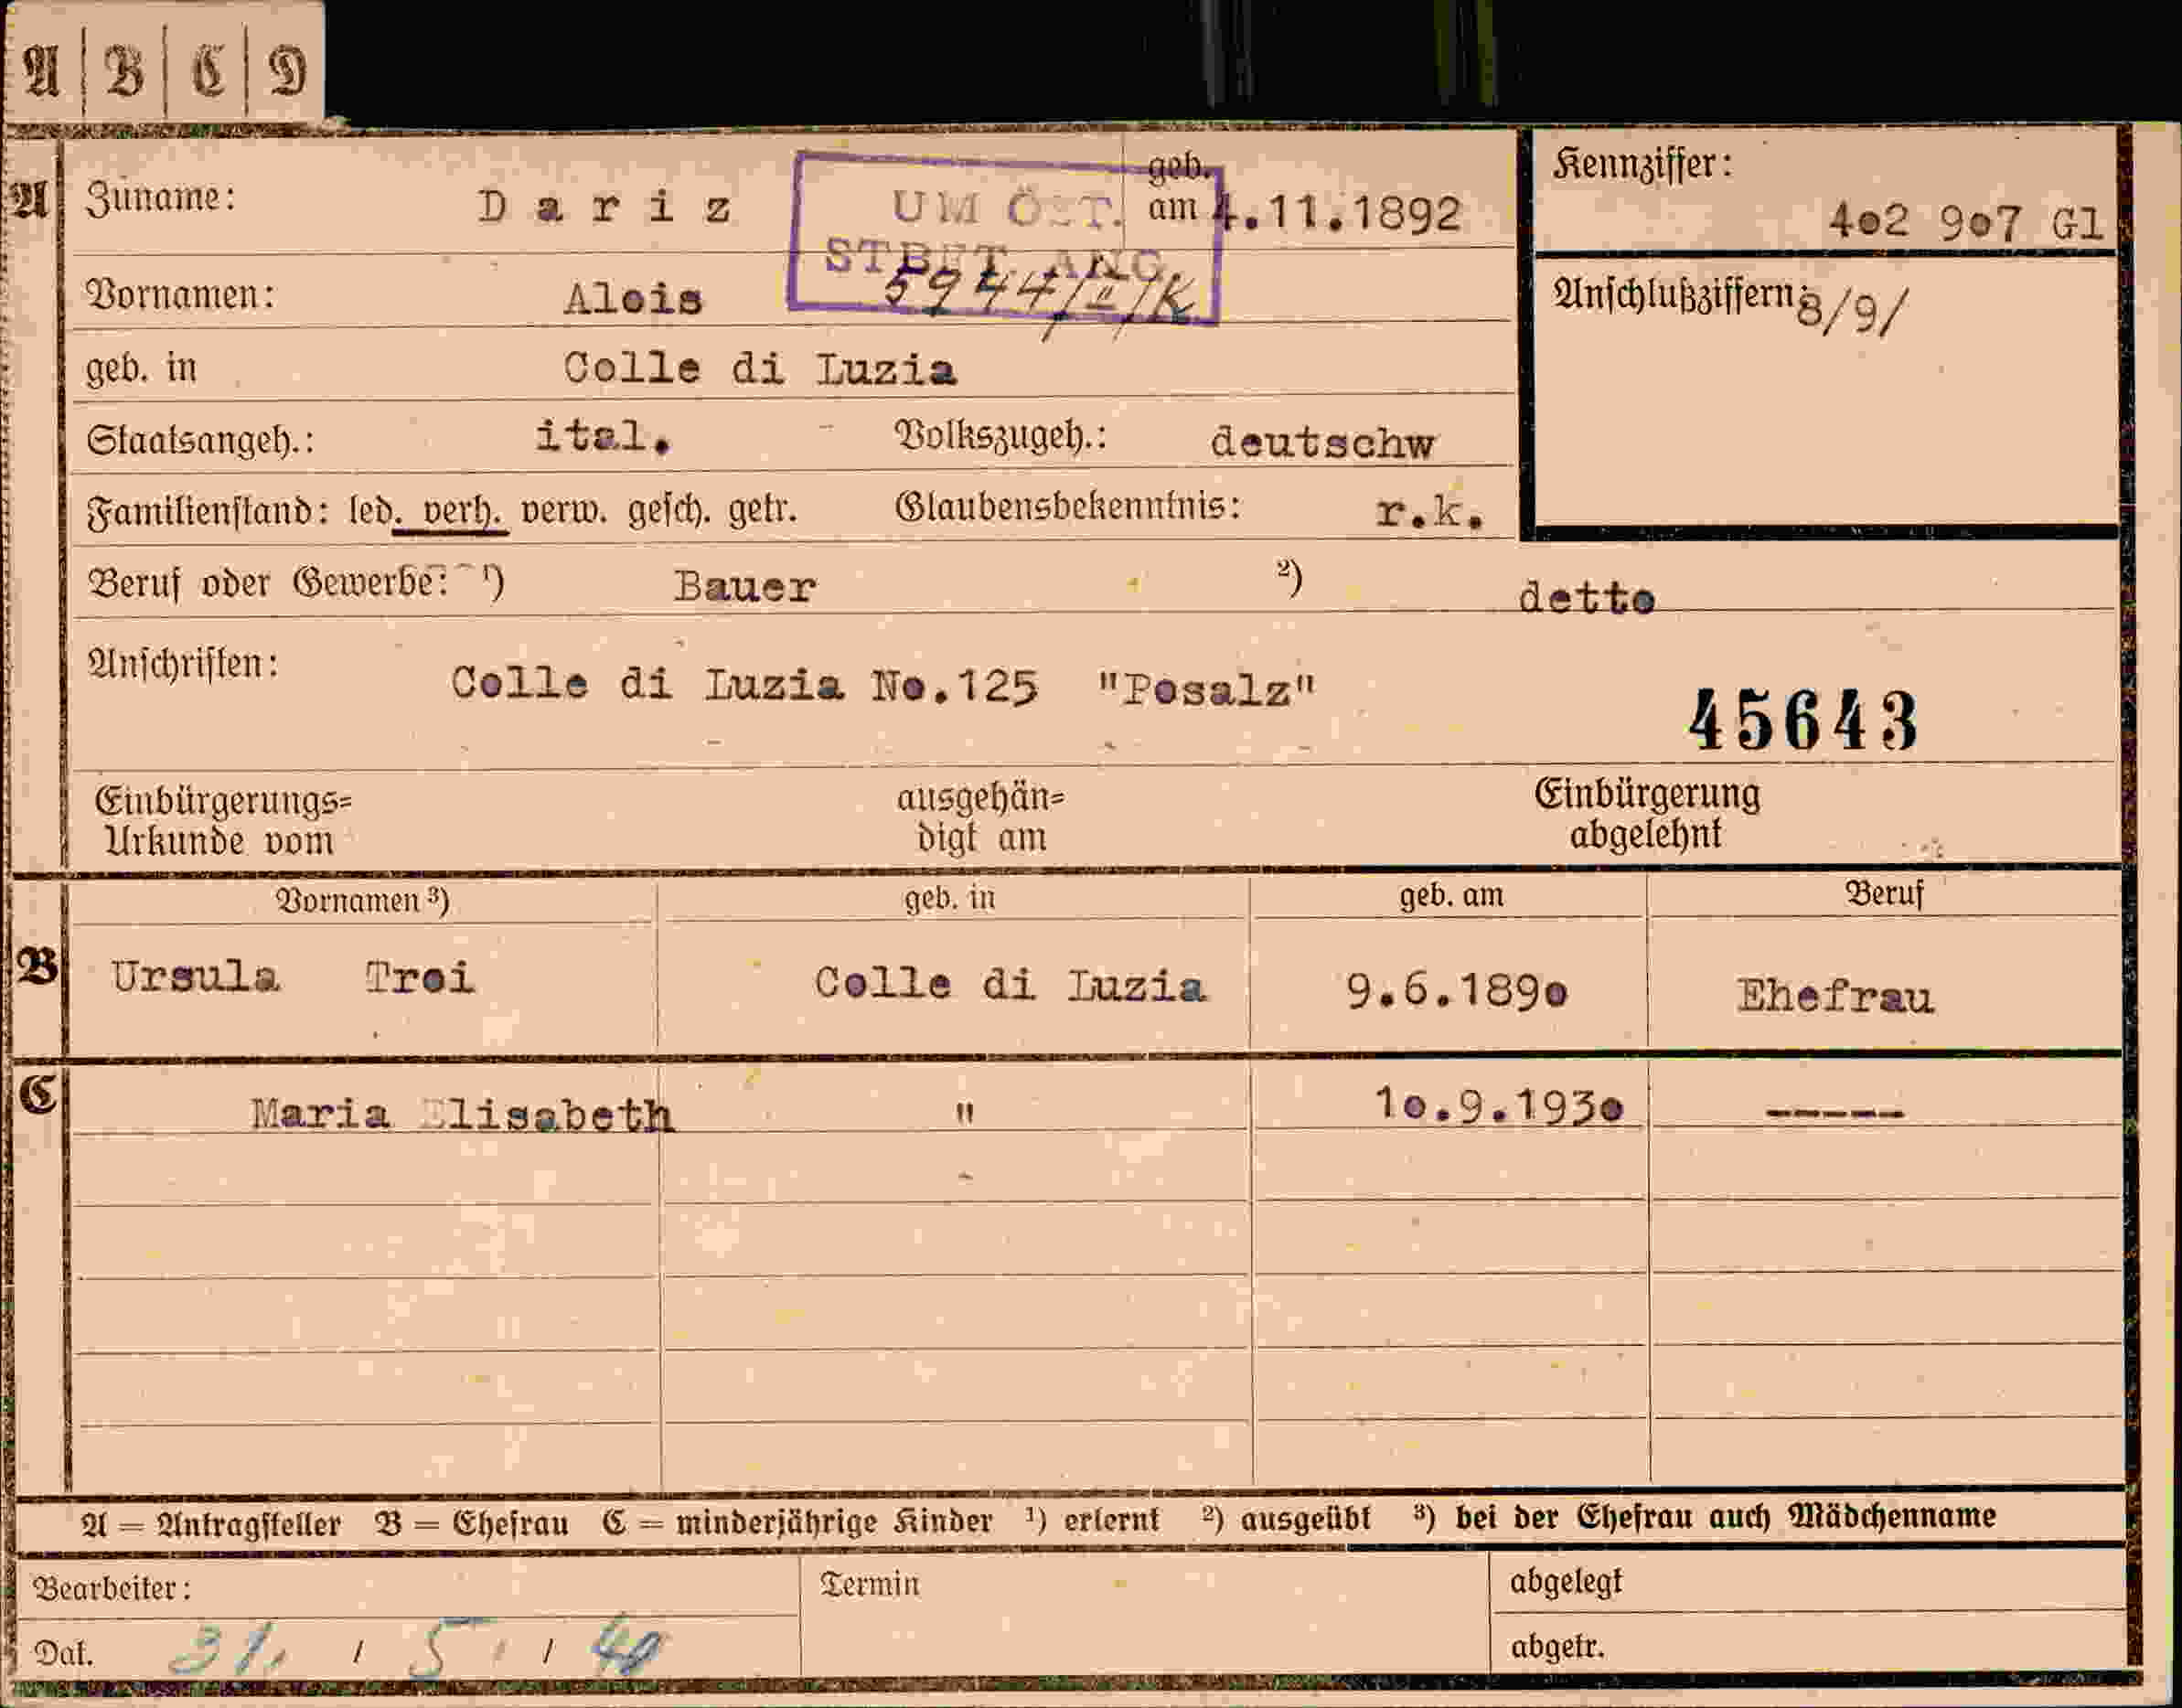 A B C D
A Zuname: Dariz UM ÖST. geb. am 4.11.1892 Kennziffer: 4o2 9o7 Gl
STBGT. ANG.
Vornamen: Alois 5944/II/K Anschlußziffern: 8/9/
geb. in Colle di Luzia
Staatsangeh.: ital. Volkszugeh.: deutschw
Familienstand: led. verh. verw. gesch. getr. Glaubensbekenntnis: r.k.
Beruf oder Gewerbe: ¹) Bauer ²) detto
Anschriften: Colle di Luzia No.125 "Posalz"
45643
Einbürgerungs= ausgehän= Einbürgerung
Urkunde vom digt am abgelehnt
Vornamen ³) geb. in geb. am Beruf
B Ursula Troi Colle di Luzia 9.6.189o Ehefrau
C Maria Elisabeth " 1o.9.193o -----
A = Antragsteller B = Ehefrau C = minderjährige Kinder ¹) erlernt ²) ausgeübt ³) bei der Ehefrau auch Mädchenname
Bearbeiter: Termin abgelegt
Dat. 31. / 5. / 40 abgetr.